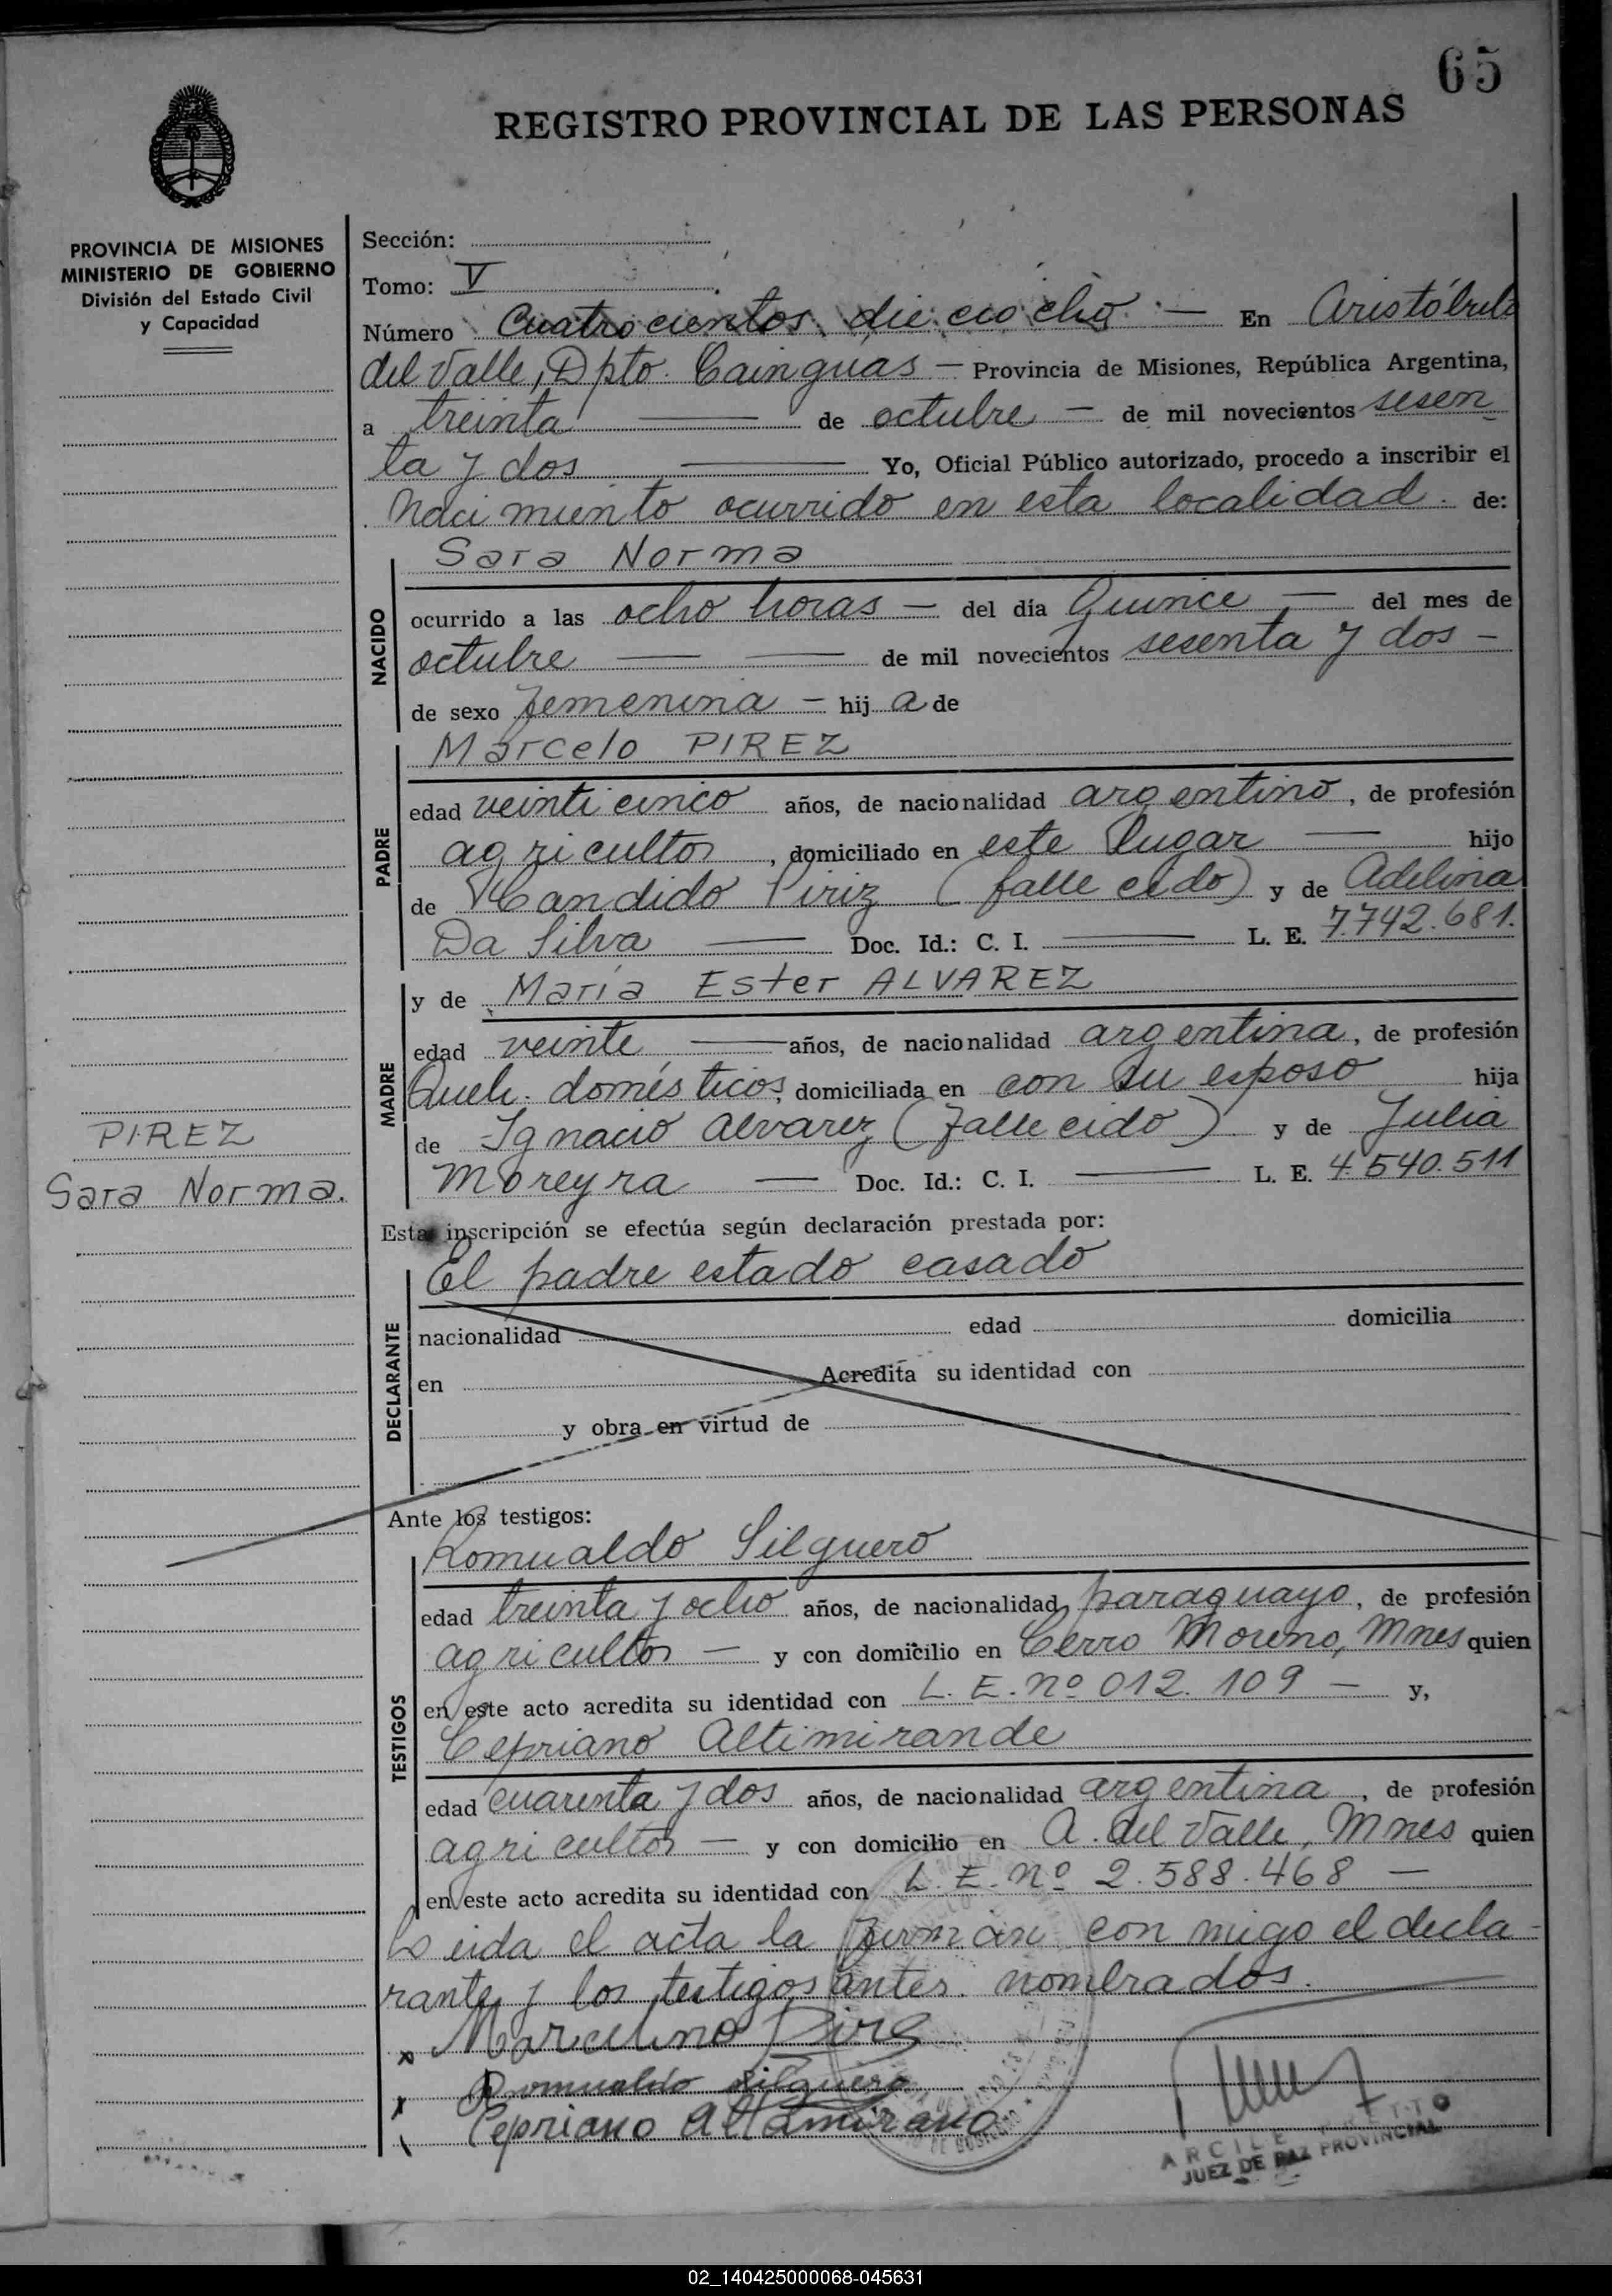 65
REGISTRO PROVINCIAL DE LAS PERSONAS
PROVINCIA DE MISIONES
MINISTERIO DE GOBIERNO
División del Estado Civil
y Capacidad
Sección:
Tomo: V
Número Cuatrocientos dieciocho. — En Aristóbulo
del Valle, Dpto. Cainguas — Provincia de Misiones, República Argentina,
a treinta — de octubre — de mil novecientos sesen
ta y dos — Yo, Oficial Público autorizado, procedo a inscribir el
nacimiento ocurrido en esta localidad. de:
Sara Norma
NACIDO
ocurrido a las ocho horas — del día Quince — del mes de
octubre — — de mil novecientos sesenta y dos —
de sexo femenina — hij a de
Marcelo PIREZ
PADRE
edad veinticinco años, de nacionalidad argentino, de profesión
agricultor, domiciliado en este lugar — hijo
de Candido Piriz (fallecido) y de Adelina
Da Silva — Doc. Id.: C. I. — L. E. 7.742.681.
y de María Ester ALVAREZ
MADRE
edad veinte — años, de nacionalidad argentina, de profesión
Queh. domésticos, domiciliada en con su esposo hija
de Ignacio Alvarez (fallecido) y de Julia
Moreyra — Doc. Id.: C. I. — L. E. 4.540.511
PIREZ
Sara Norma.
Esta inscripción se efectúa según declaración prestada por:
El padre estado casado
DECLARANTE
nacionalidad edad domicilia
en Acredita su identidad con
y obra en virtud de
Ante los testigos:
Romualdo Silguero
TESTIGOS
edad treinta y ocho años, de nacionalidad paraguayo, de profesión
agricultor — y con domicilio en Cerro Moreno, Mnes quien
en este acto acredita su identidad con L. E. nº 012.109 — y,
Cepriano Altimirande
edad cuarenta y dos años, de nacionalidad argentina, de profesión
agricultor — y con domicilio en A. del Valle, Mnes quien
en este acto acredita su identidad con L. E. nº 2.588.468 —
Leida el acta la firman con migo el decla-
rante y los testigos antes nombrados.
x Marcelino Pirs
x Romualdo Silguero
Cepriano Altamirano
JUEZ DE PAZ PROVINCIAL
02_140425000068-045631